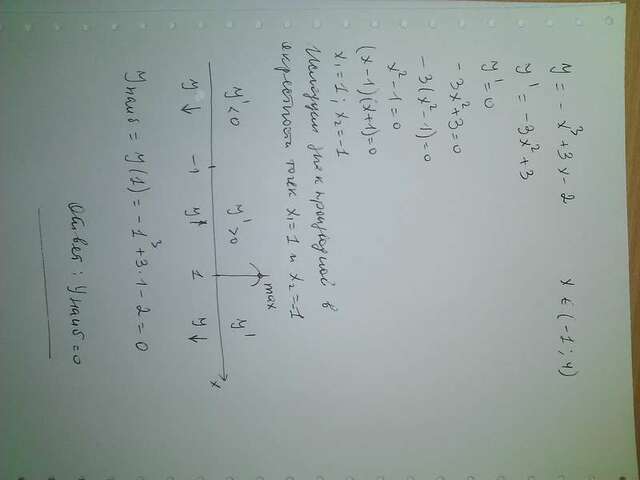 y = -x³+3x-2 x ∈ (-1; 4)
y' = -3x²+3
y'=0
-3x²+3=0
-3(x²-1)=0
x²-1=0
(x-1)(x+1)=0
x₁=1; x₂=-1
Исследуем знак производной в
окрестности точек x₁=1 и x₂=-1
max
y'<0 y'>0 y'
x
y↓ -1 y↑ 1 y↓
yнаиб = y(1) = -1³+3·1-2=0
Ответ: yнаиб=0